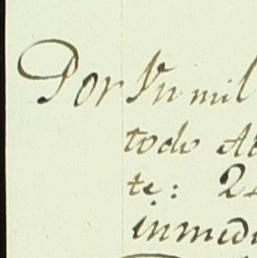 Por Yn mil
todo
te: 2
inmedi